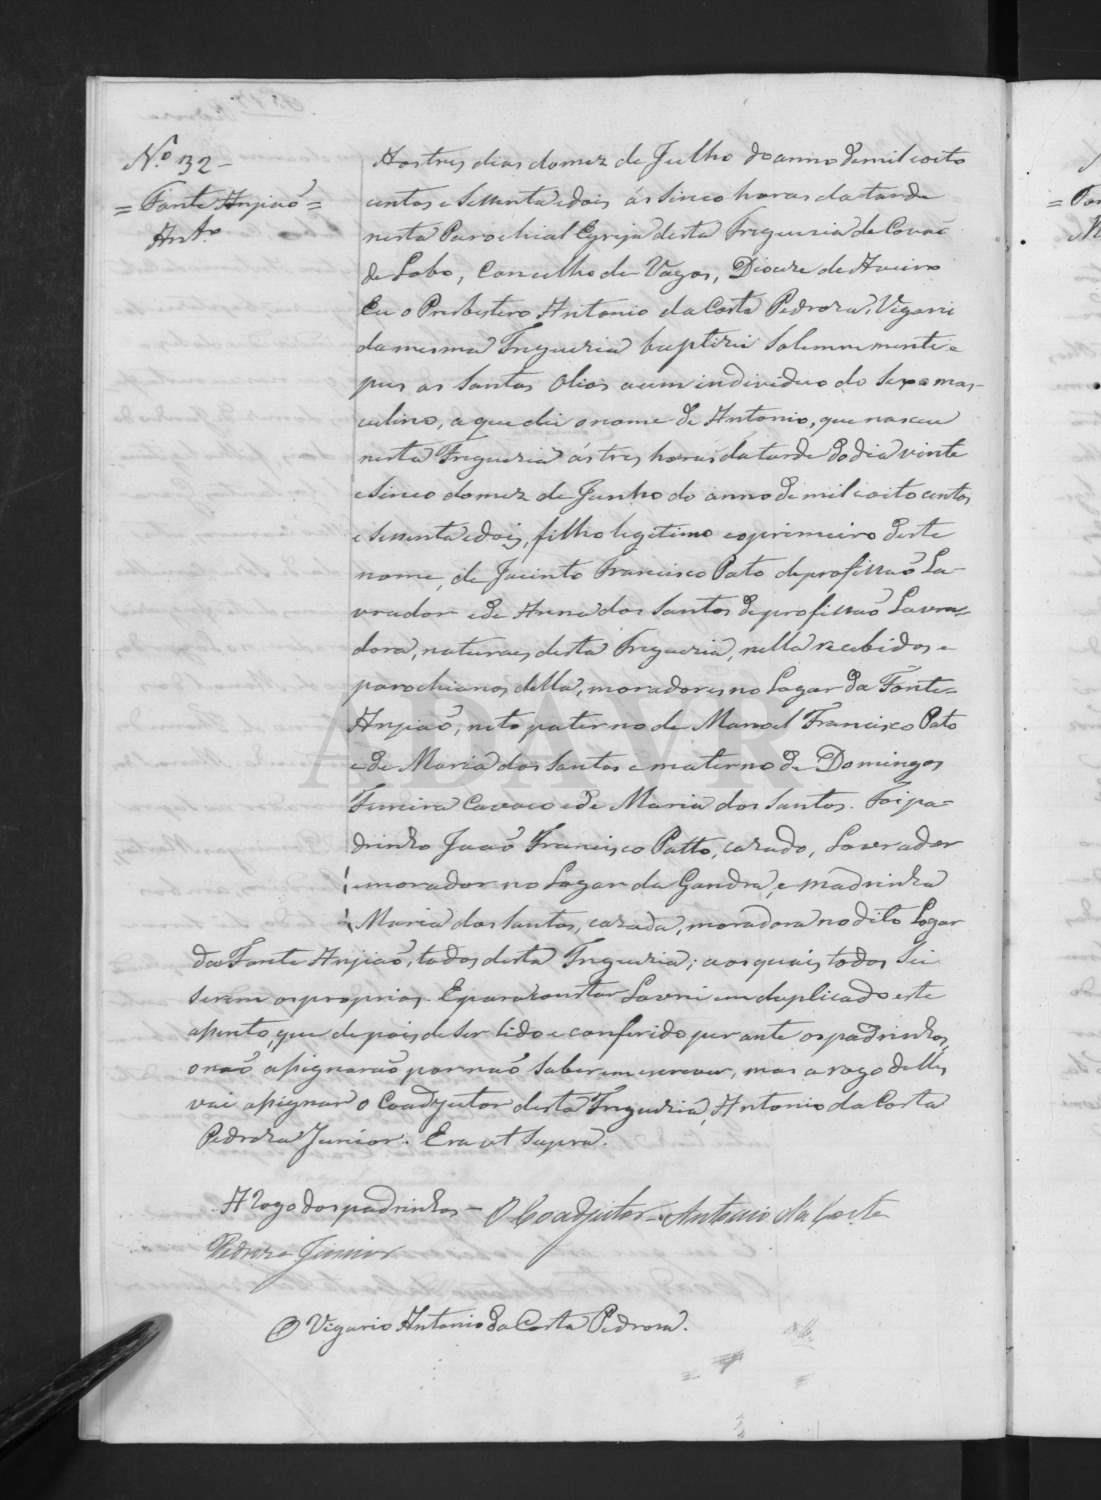 Nº 32 -
= Fonte Anjiaõ =
Antº
Aos tres dias do mez de Julho do anno de mil eoito
centos e Sessenta e dois ás Sinco horas da tarde
nesta Parochial Egreja desta Freguezia de Covaõ
de Lobo, Concelho de Vagos, Diocese de Aveiro
Eu o Presbitero Antonio da Costa Pedroza, Vigario
da mesma Freguezia baptizei Solemnemente e
pus os Santos Olios a um individuo do Sexo mas-
culino, a que dei o nome de Antonio, que nasceu
nesta Freguezia ás tres horas da tarde do dia vinte
e Sinco do mez de Junho do anno de mil e oito centos
e Sessenta e dois, filho legitimo e o primeiro deste
nome, de Jacinto Francisco Pato de profissaõ La-
vrador e de Anna dos Santos de profissaõ Lavra=
dora, naturaes desta Freguezia, nella recebidos e
parochianos della, moradores no Logar da Fonte=
Anjiaõ; neto paterno de Manoel Francisco Pato
e de Maria dos Santos e materno de Domingos
Ferreira Cavaco e de Maria dos Santos. Foi pa=
drinho Joaõ Francisco Patto, cazado, Lavrador
e morador no Logar da Gandra, e madrinha
Maria dos Santos, cazada, moradora no dito Logar
da Fonte Anjiaõ, todos desta Freguezia; aos quais todos Sei
Serem os proprios. E para constar Lavrei em duplicado este
assento, que depois de Ser lido e conferido perante os padrinhos,
o naõ assignaraõ por naõ Saberem escrever, mas a rogo delles
vai assignar o Coadjutor desta Freguezia, Antonio da Costa
Pedroza Junior. Era ut Supra.
A rogo dos padrinhos - O Coadjutor - Antonio da Costa
Pedroza Junior
O Vigario Antonio da Costa Pedroza.
ADAVR